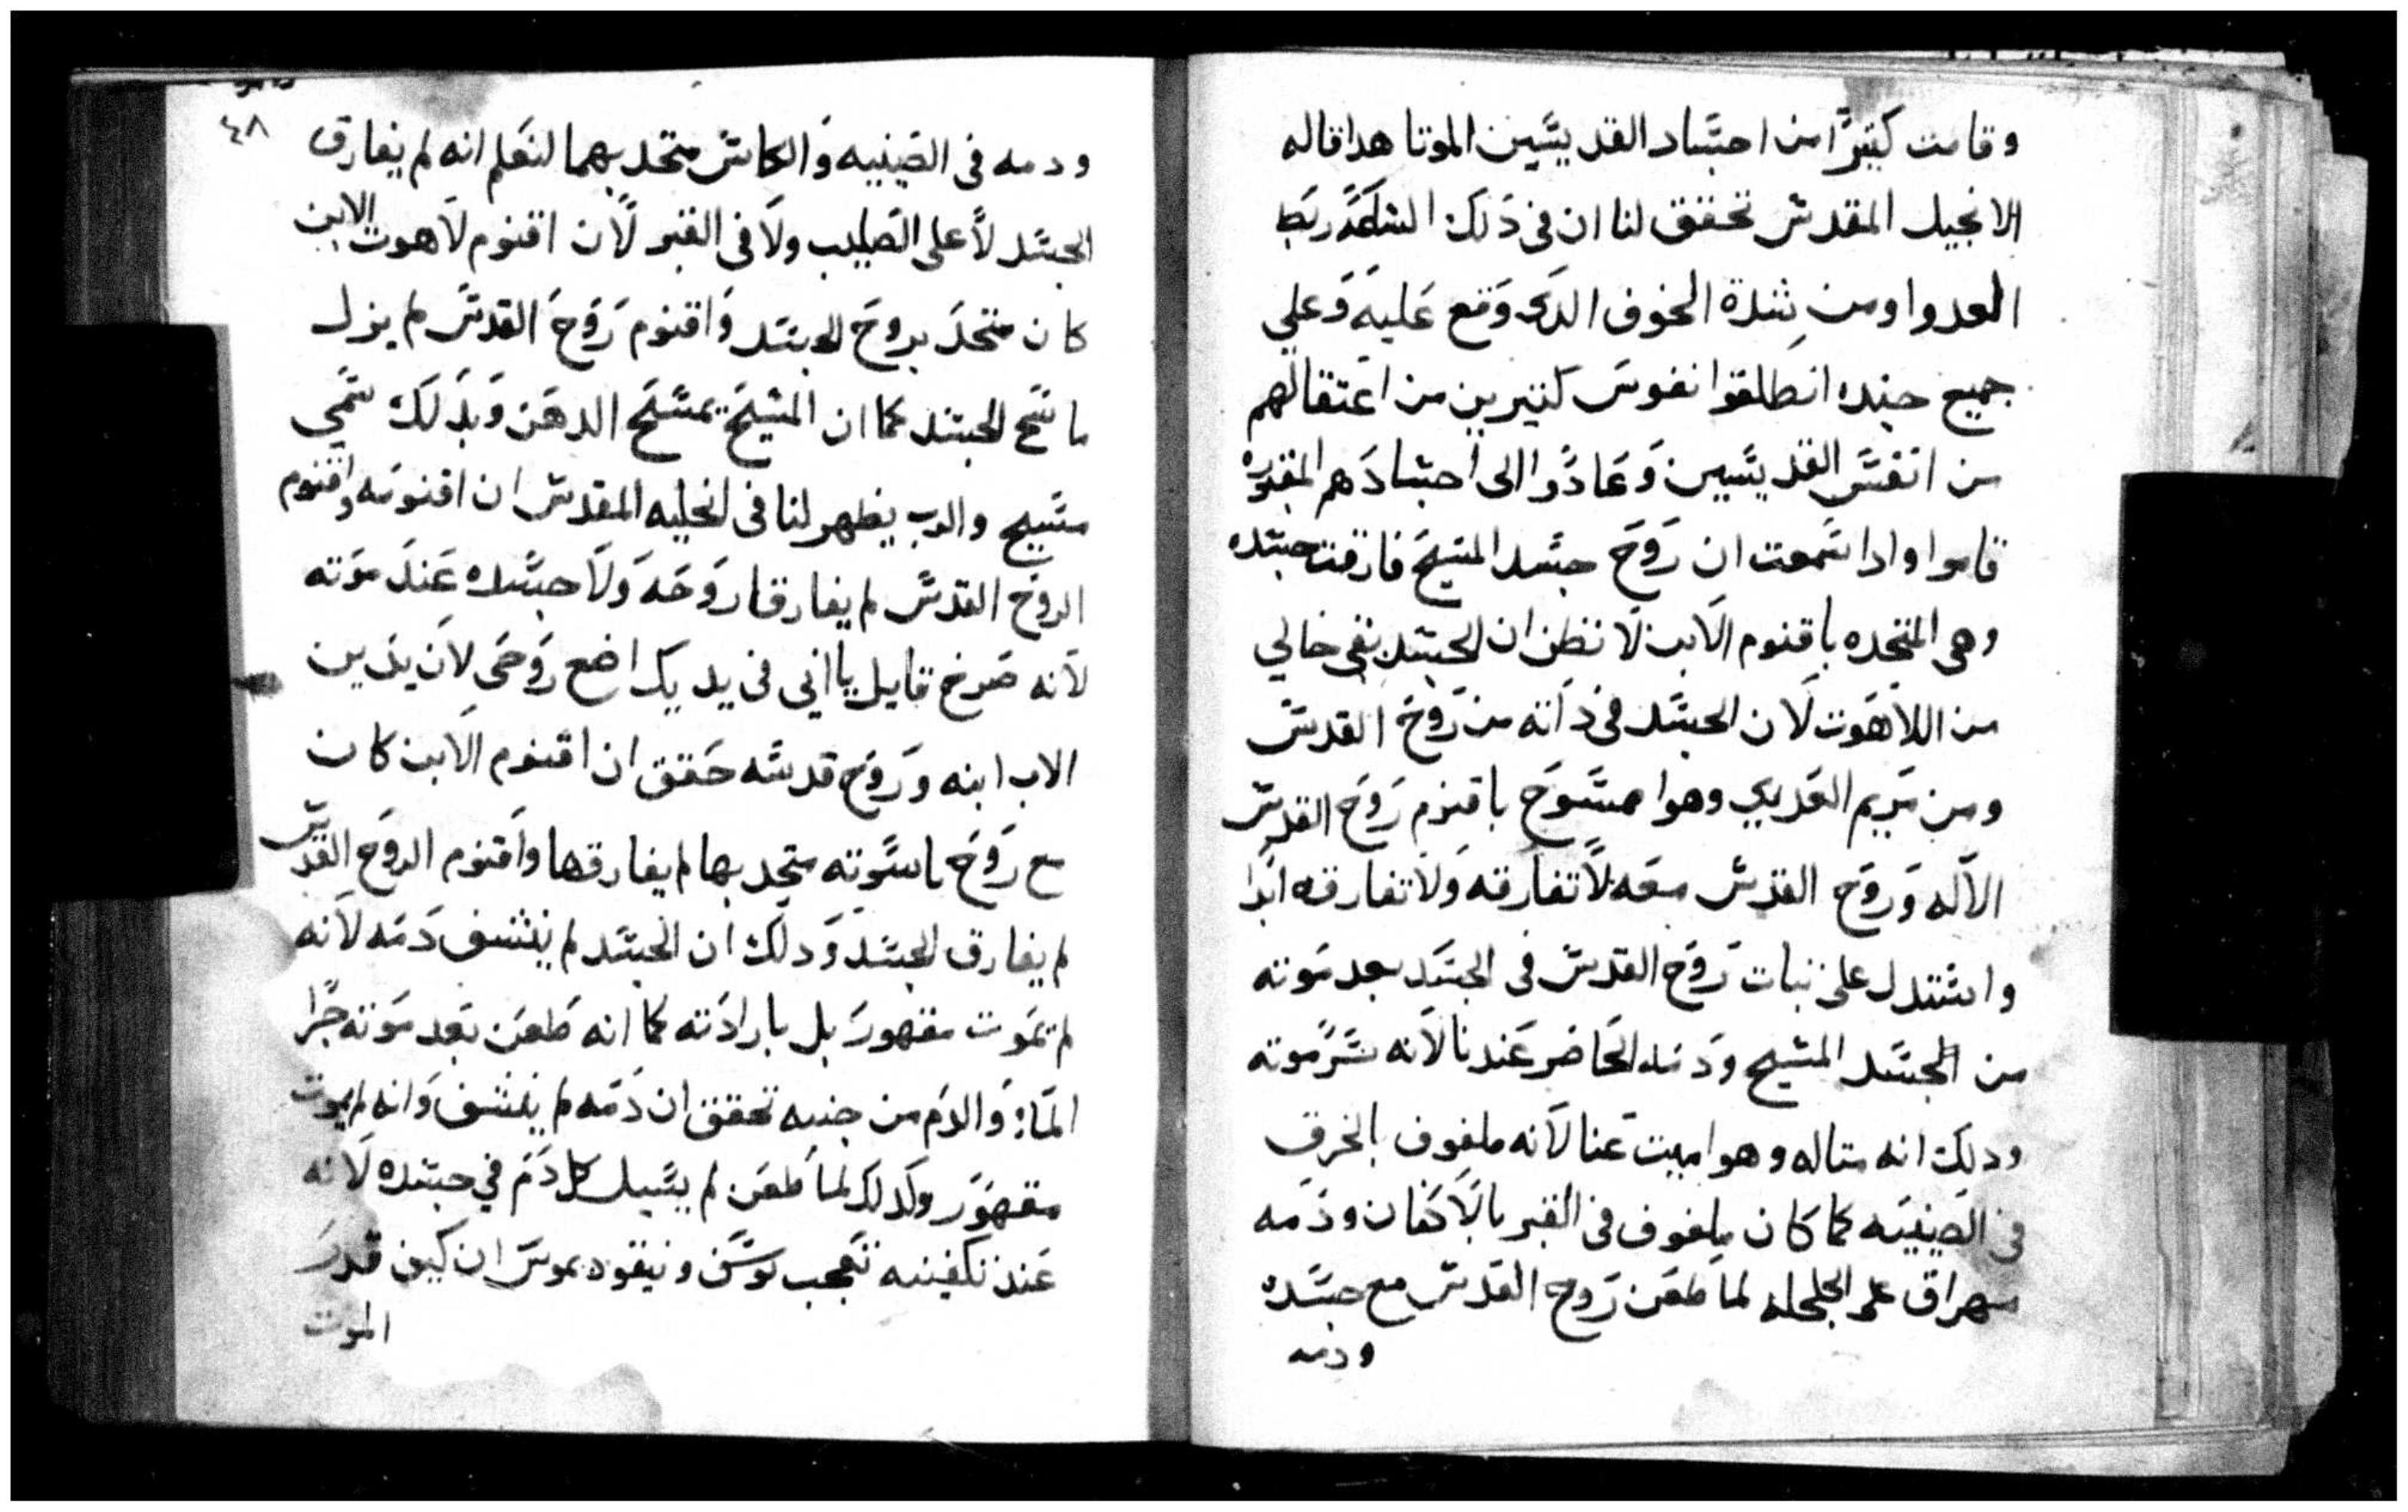 وقامت كتيرًا من اجساد القديسين الموتا هدا قاله
الانجيل المقدس تحقق لنا ان فى ذلك الساعة ربط
العدوا ومن شدة الخوف الدى وقع عليه وعلي
جميع جنده انطلقوا نفوس كتيرين من اعتقالهم
من انفس القديسين وعادوا الى اجسادهم المقبوره
قاموا وادا سمعت ان روح جسد المسيح فارقت جسده
وهى المتحده باقنوم الابن لا نظن ان الجسد بقى خالي
من اللاهوت لان الجسد فى ذاته من روح القدس
ومن مريم العدرى وهوا ممسوح باقنوم روح القدس
الاله وروح القدس معه لا تفارقه ولا تفارقه ابدا
واستدل على تبات روح القدس فى الجسد بعد موته
من الجسد المسيح ودمه الحاضر عندنا لانه سر موته
ودلك انه متاله وهوا ميت عنا لانه ملفوف بالخرق
فى الصينيه كما كان ملفوف فى القبر بالاكفان ودمه
مهراق على الجلجله لما طعن روح القدس مع جسده
ودمه
٤٨
ودمه فى الصينيه والكاس متحد بهما لنعلم انه لم يفارق
الجسد لا على الصليب ولا فى القبر لان اقنوم لاهوت الابن
كان متحد بروح الجسد واقنوم روح القدس لم يزل
ماسح الجسد كما ان المسيح يمسح الدهن وبدلك سمي
مسيح والرب يظهر لنا فى انجليه المقدس ان اقنومه واقنوم
الروح القدس لم يفارقا روحه ولا جسده عند موته
لانه صرخ قايل يا ابي فى يديك اضع روحى لان يدين
الاب ابنه وروح قدسه حقق ان اقنوم الابن كان
مع روح ناسوته متحد بها لم يفارقها واقنوم الروح القدس
لم يفارق الجسد ودلك ان الجسد لم ينشف دمه لانه
لم يموت مقهور بل بارادته كما انه طعن بعد موته جرا
الماء والدم من جنبه تحقق ان دمه لم ينشف وانه لم يموت
مقهور وكدلك لما طعن لم يسيل كل دم في جسده لانه
عند تكفينه تعجب يوسف ونيقوديموس ان كيف قدر
الموت